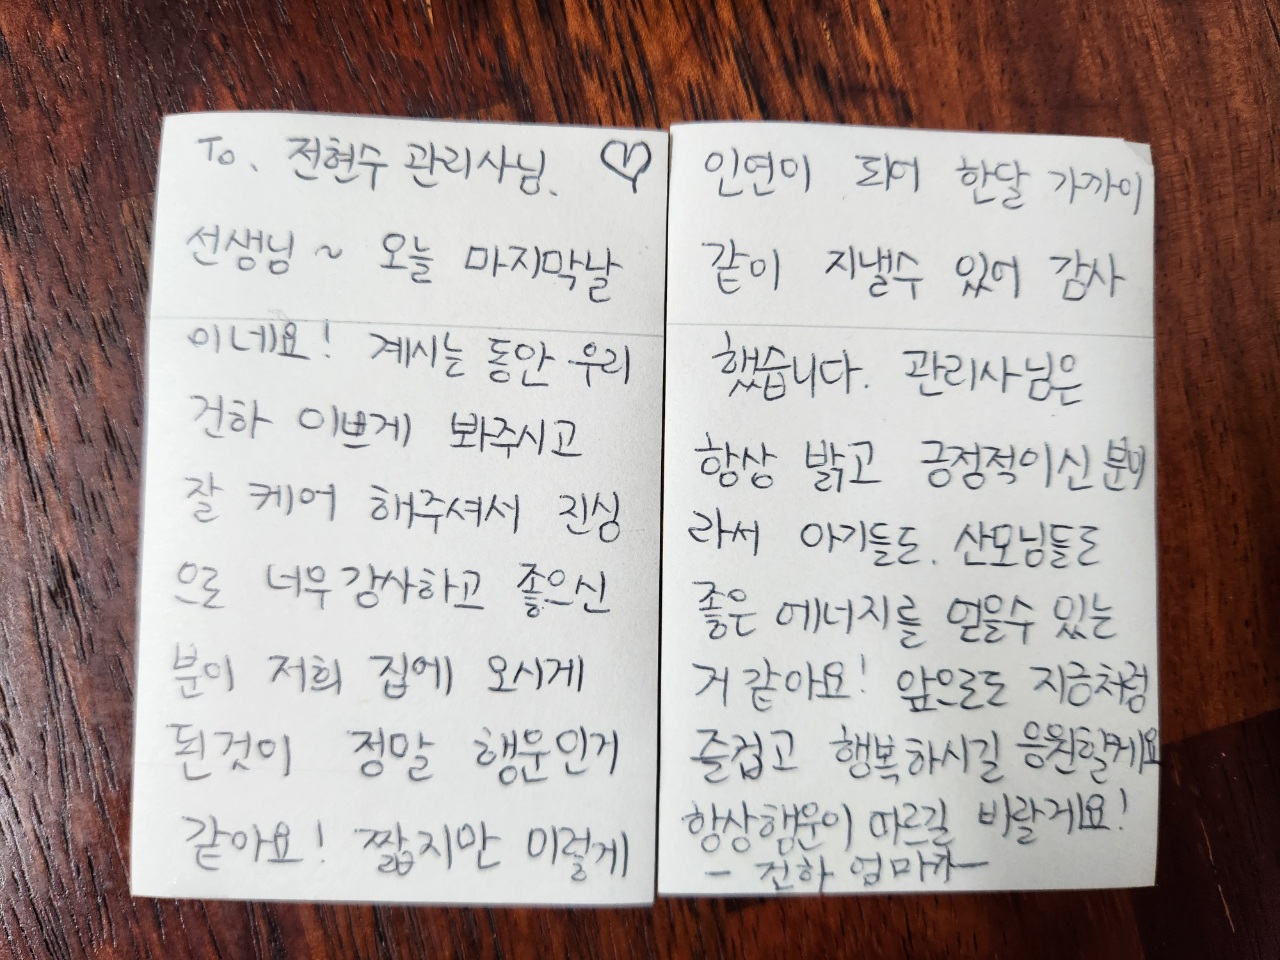 To. 전현수 관리사님. ♡
선생님 ~ 오늘 마지막날
이네요! 계시는 동안 우리
건하 이쁘게 봐주시고
잘 케어 해주셔서 진심
으로 너무 감사하고 좋으신
분이 저희 집에 오시게
된것이 정말 행운인거
같아요! 짧지만 이렇게
인연이 되어 한달 가까이
같이 지낼수 있어 감사
했습니다. 관리사님은
항상 밝고 긍정적이신 분이
라서 아기들도. 산모님들도
좋은 에너지를 얻을수 있는
거 같아요! 앞으로도 지금처럼
즐겁고 행복하시길 응원할께요
항상행운이 따르길 바랄게요!
- 건하 엄마가 -